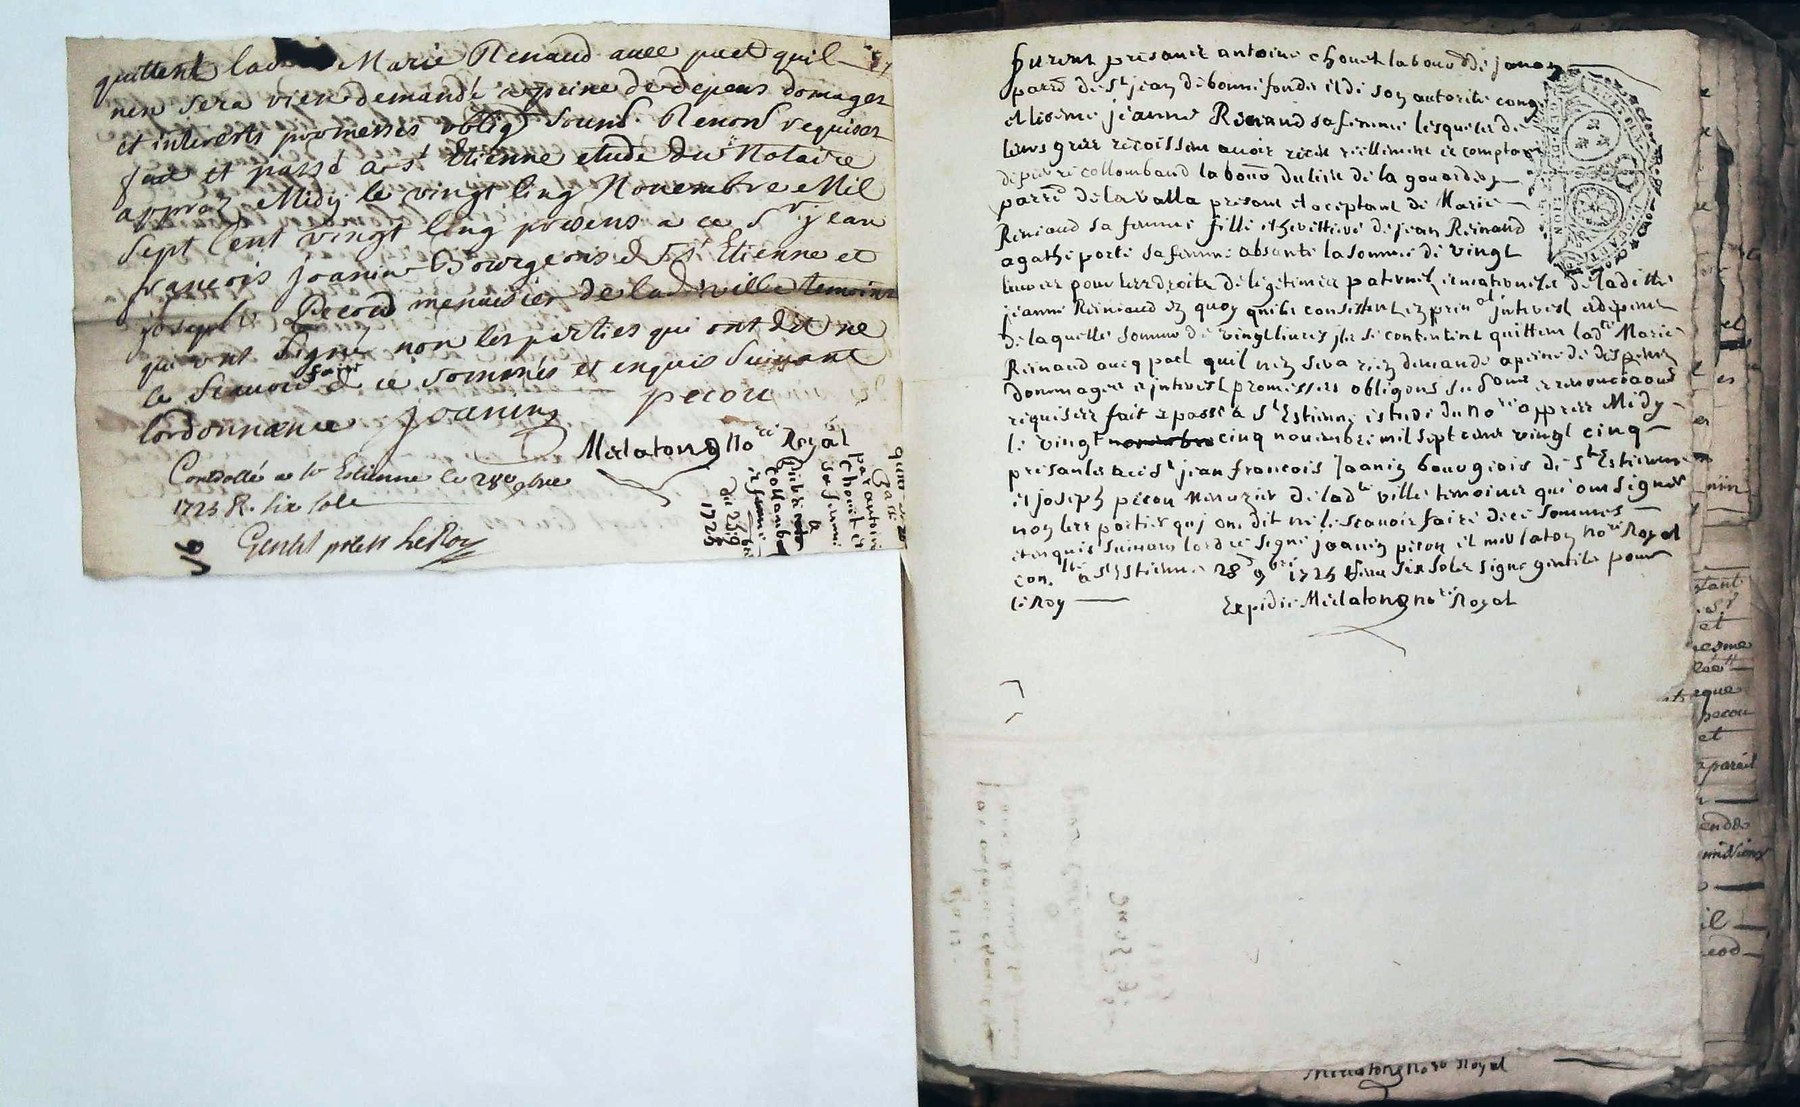 quittent lad Marie Renaud avec pact quil
nen sera rien demandé a peine de depens domages
et interests promesses oblig soums Renons requises
fait et passé a st Etienne etude du Notaire
apprez Midy le vingt cinq Novembre Mil
sept cent vingt cinq presens a ce Sr jean
francois joanin Bourgeois de St Etienne et
joseph Pecou menuisier de lad ville temoins
qui ont signé non les parties qui ont dit ne
le scavoir faire de ce sommés et enquis suivant
lordonnance joanin pecou
Merlatong no re Royal
Controllé a st Estienne le 28e 9bre
1725 R. six sols
Gentil pour le Roy
quittance
par antoine
Chouet et
sa femme
a
Pierre
Collomba
et femme
du 25 9bre
1725
furent presants antoine chouet labour de jonon
parre de st jean de bonnefonds et de son autorite cong
et licence jeanne Reniaud sa femme lesquels de
leurs gres recoissent avoir receu reellement et comptan
de pierre collomband labour du lieu de la
parre de lavalla presant et aceptant de Marie
Reniaud sa femme fille et heritiere de jean Reniaud
agathe porte sa femme absante la somme de vingt
livres pour les droits de legitimes paternel et maternels de ladette
jeanne Reniaud ez quoy quils consistent ez prin al jnterest et depens
de laquelle somme de vingt livres jls se contentent quittent ladte Marie
Reniaud avecq pact quil nez sera riez demande a peine de despens
dommages et jnterest promesses obligons soubs et renonciaons
requises fait et passé a st Estienne estude du no re apprez Midy
le vingt cinq novembre mil sept cent vingt cinq
presants a ce sr jean francois Joaniz bourgeois de st Estienne
et joseph pecou Menuzier de ladte ville temoins qui ont signe
noz les parties quj ont dit ne le scavoir faire de ce sommes
et enquis suivant lord ce signe joaniz pecou et merlatoz no re Royal
con. lle a st Estienne 28e 9bre 1725 six sols signe gentil pour
le Roy Expedie Merlatong no re Royal
Merlatong no re Royal